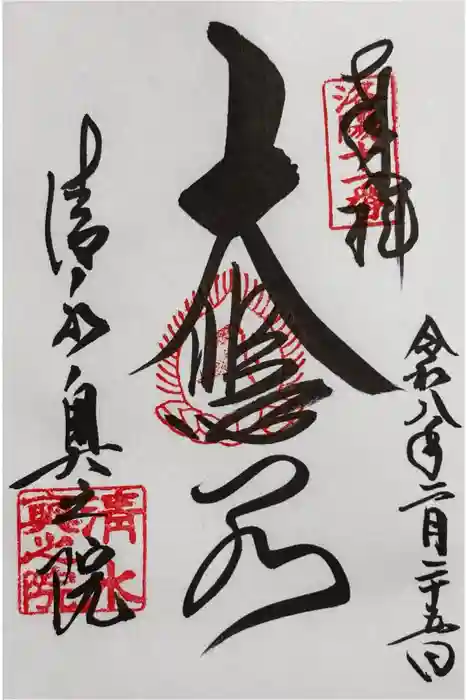 奉拝
洛陽十一番
令和八年二月二十五日
大悲閣
清水奥之院
清水
奥之院